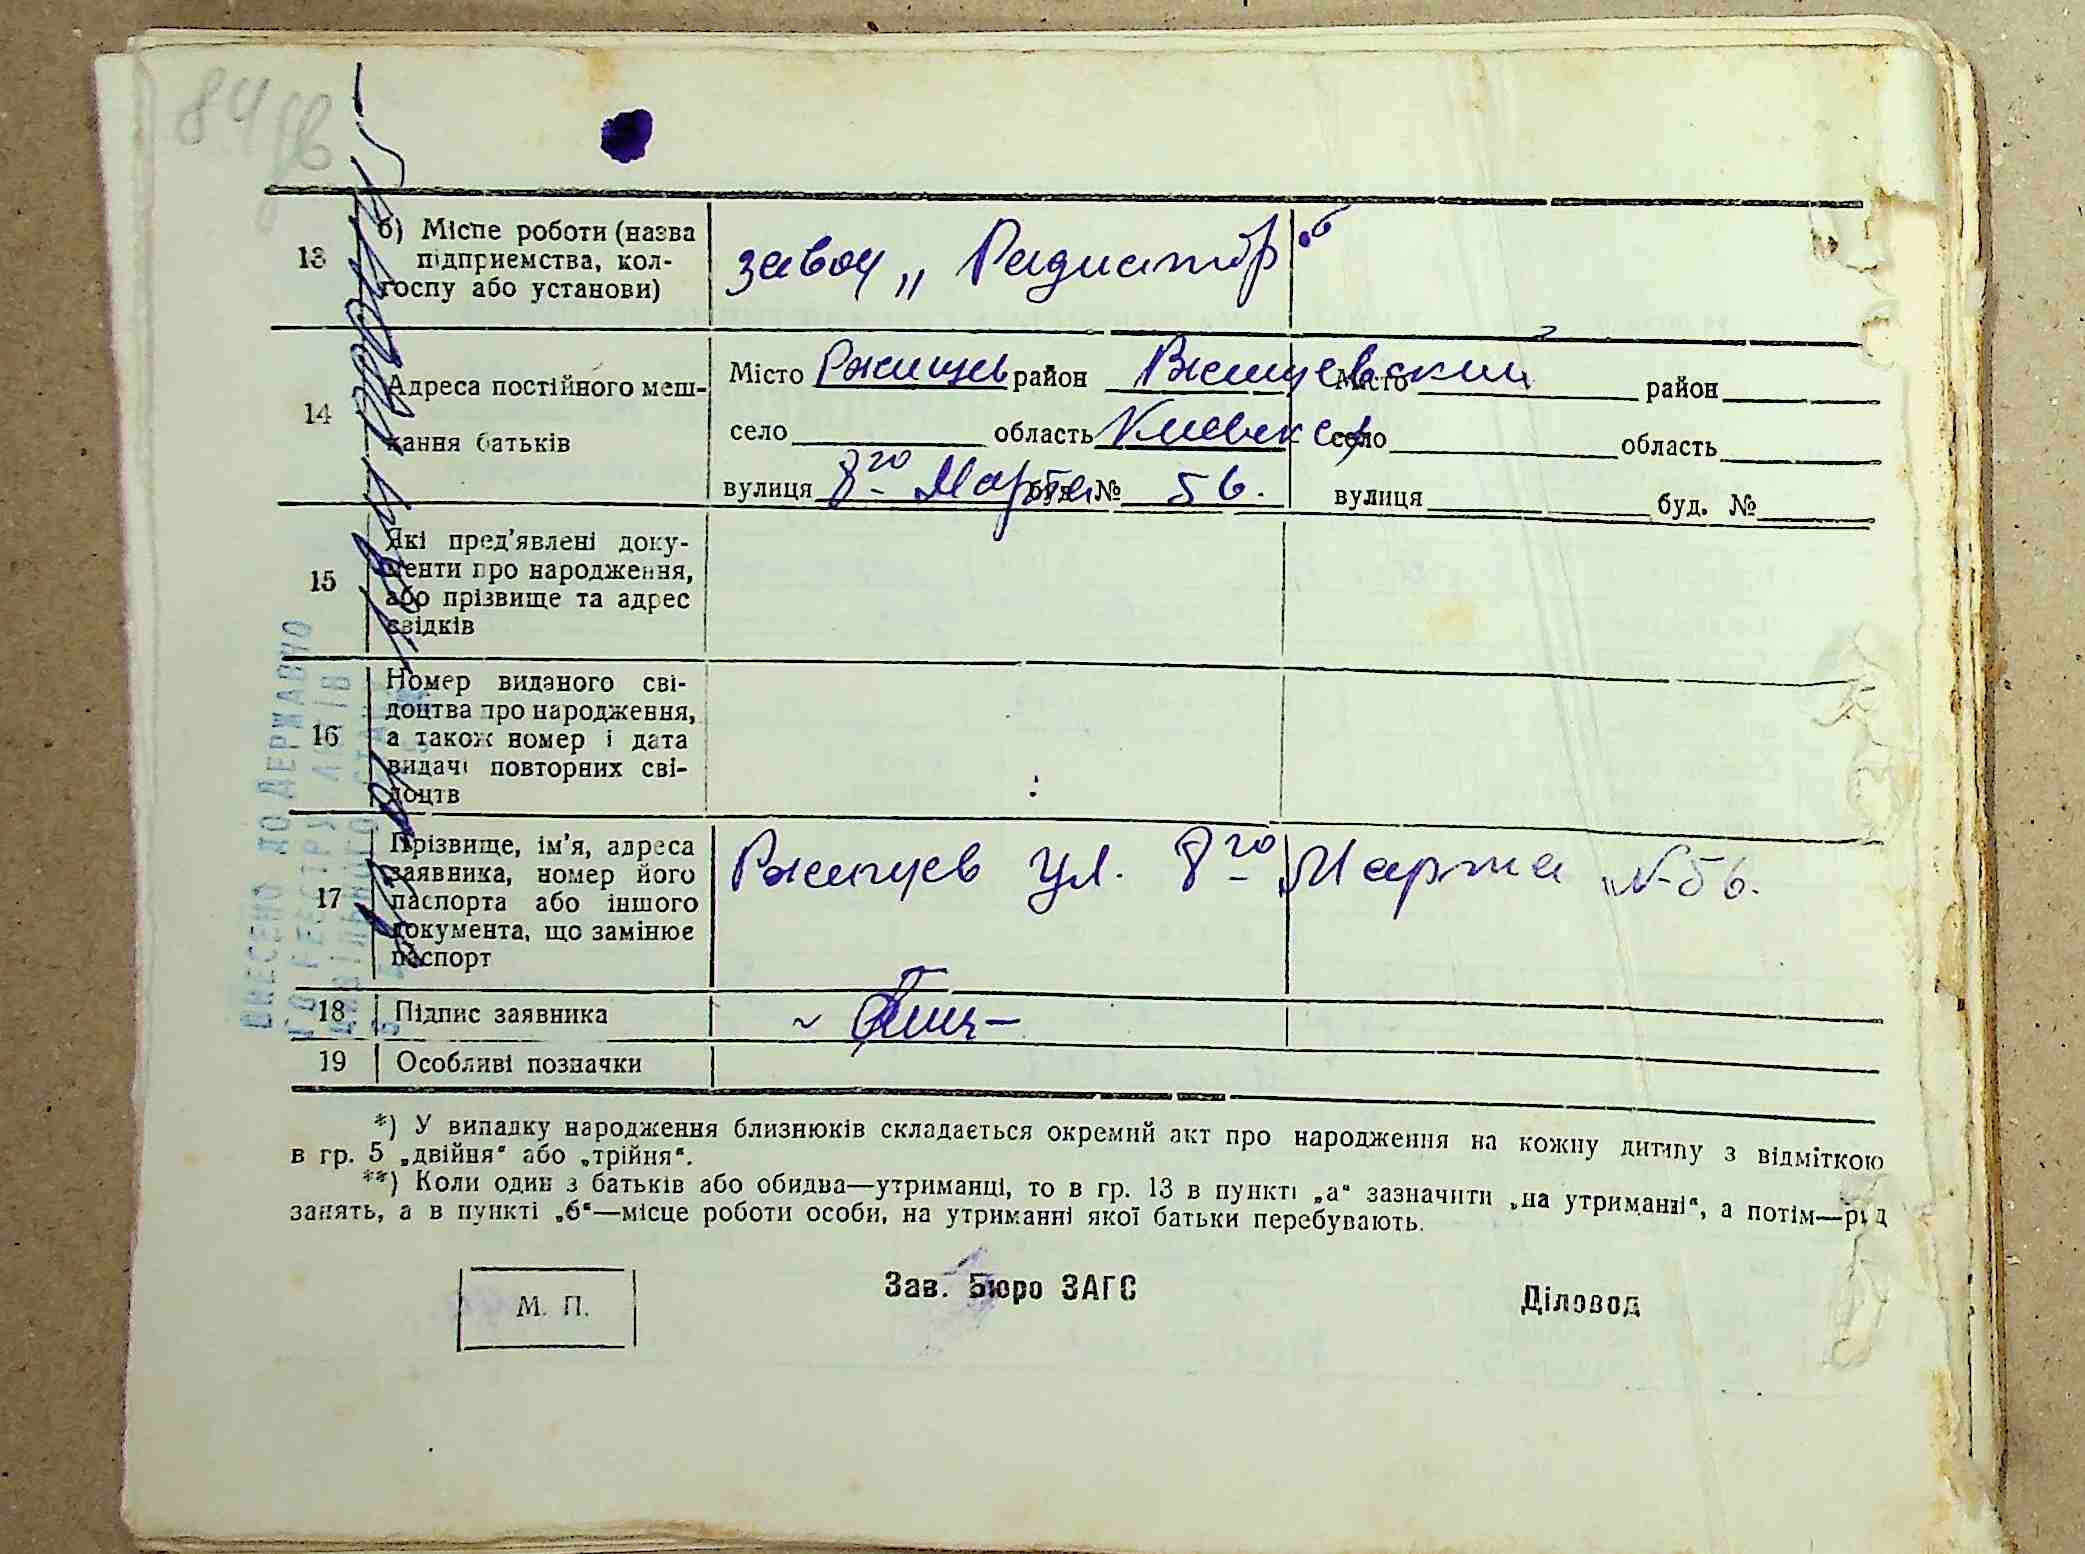 84 зв
13 б) Місце роботи (назва
підприємства, кол-
госпу або установи)
завод „Радиатор“
14 Адреса постійного меш-
кання батьків
Місто Ржищев район Ржищевский
село область Киевская
вулиця 8го Марта буд. № 56.
Місто район
село область
вулиця буд. №
15 Які пред'явлені доку-
менти про народження,
або прізвище та адрес
свідків
16 Номер виданого сві-
доцтва про народження,
а також номер і дата
видачі повторних сві-
доцтв
17 Прізвище, ім'я, адреса
заявника, номер його
паспорта або іншого
документа, що замінює
паспорт
Ржищев ул. 8го Марта №56.
18 Підпис заявника
19 Особливі позначки
ВНЕСЕНО ДО ДЕРЖАВНО
ГО РЕЄСТРУ АКТІВ
ЦИВІЛЬНОГО СТАНУ
*) У випадку народження близнюків складається окремий акт про народження на кожну дитину з відміткою
в гр. 5 „двійня“ або „трійня“.
**) Коли один з батьків або обидва—утриманці, то в гр. 13 в пункті „а“ зазначити „на утриманні“, а потім—рід
занять, а в пункті „б“—місце роботи особи, на утриманні якої батьки перебувають.
М. П.
Зав. Бюро ЗАГС
Діловод